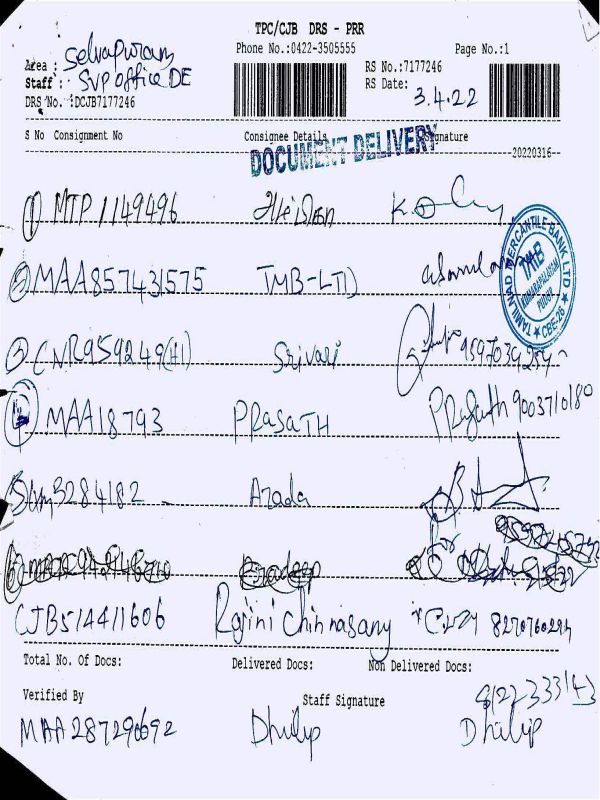 TPC/CJB DRS - PRR
Phone No.:0422-3505555
Page No.:1
Area : Selvapuram
Staff : SVP office DE
DRS No. :DCJB7177246
RS No.:7177246
RS Date: 3.4.22
S No Consignment No Consignee Details Signature
DOCUMENT DELIVERY
20220316
1 MTP 1149496
2 MAA857431575 TMB-LTD
TAMILNAD MERCANTILE BANK LTD
TMB
CBE-26
3 CNR959249(H1) Srivari
4 MAA18793 PRASATH Prasath 9003710180
5 3284182 Azada
6
CJB514411606 Rajini Chinnasamy
Total No. Of Docs: Delivered Docs: Non Delivered Docs:
Verified By Staff Signature
MAA287290692 Dhilip Dhilip